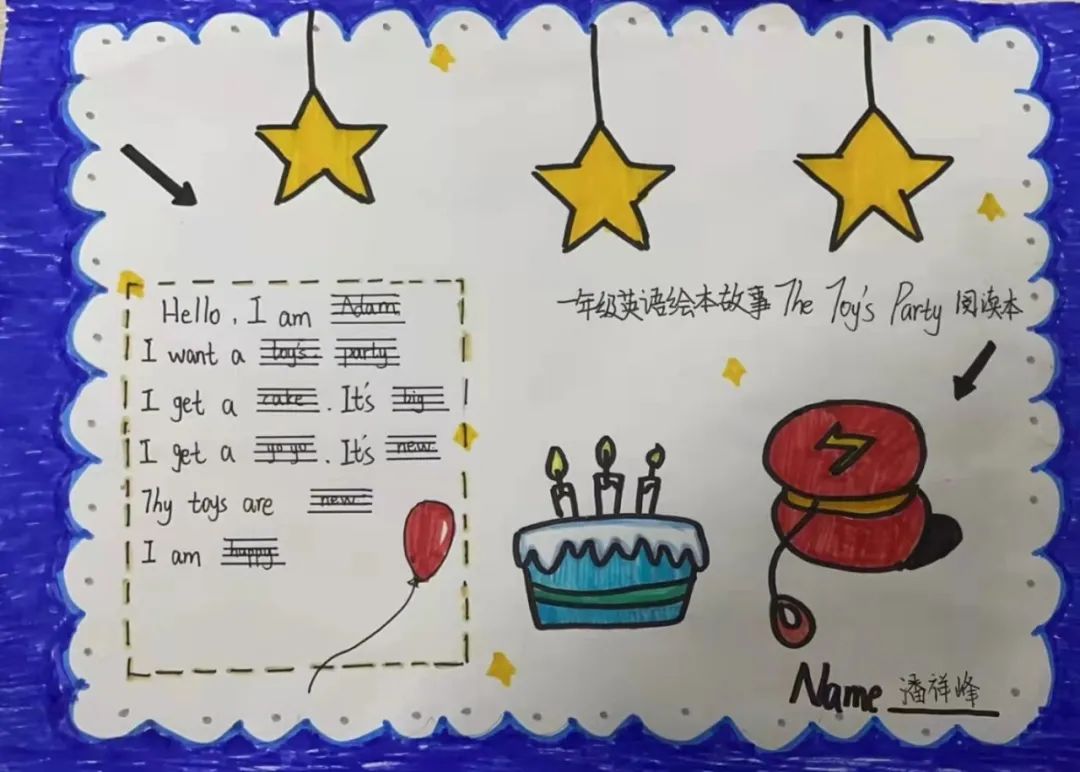 Hello, I am Adam
I want a toy's party
I get a cake. It's big
I get a yo yo. It's new
Thy toys are new
I am happy
一年级英语绘本故事 The Toy's Party 阅读本
Name 潘祥峰